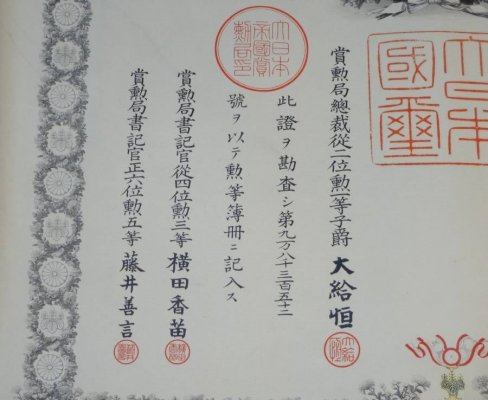 大日本國璽
賞勲局總裁從二位勲一等子爵大給恒
大日本帝國賞勲局印
此證ヲ勘査シ第九万八千三百五十二
號ヲ以テ勲等簿册ニ記入ス
賞勲局書記官從四位勲三等横田香苗
賞勲局書記官正六位勲五等藤井善言